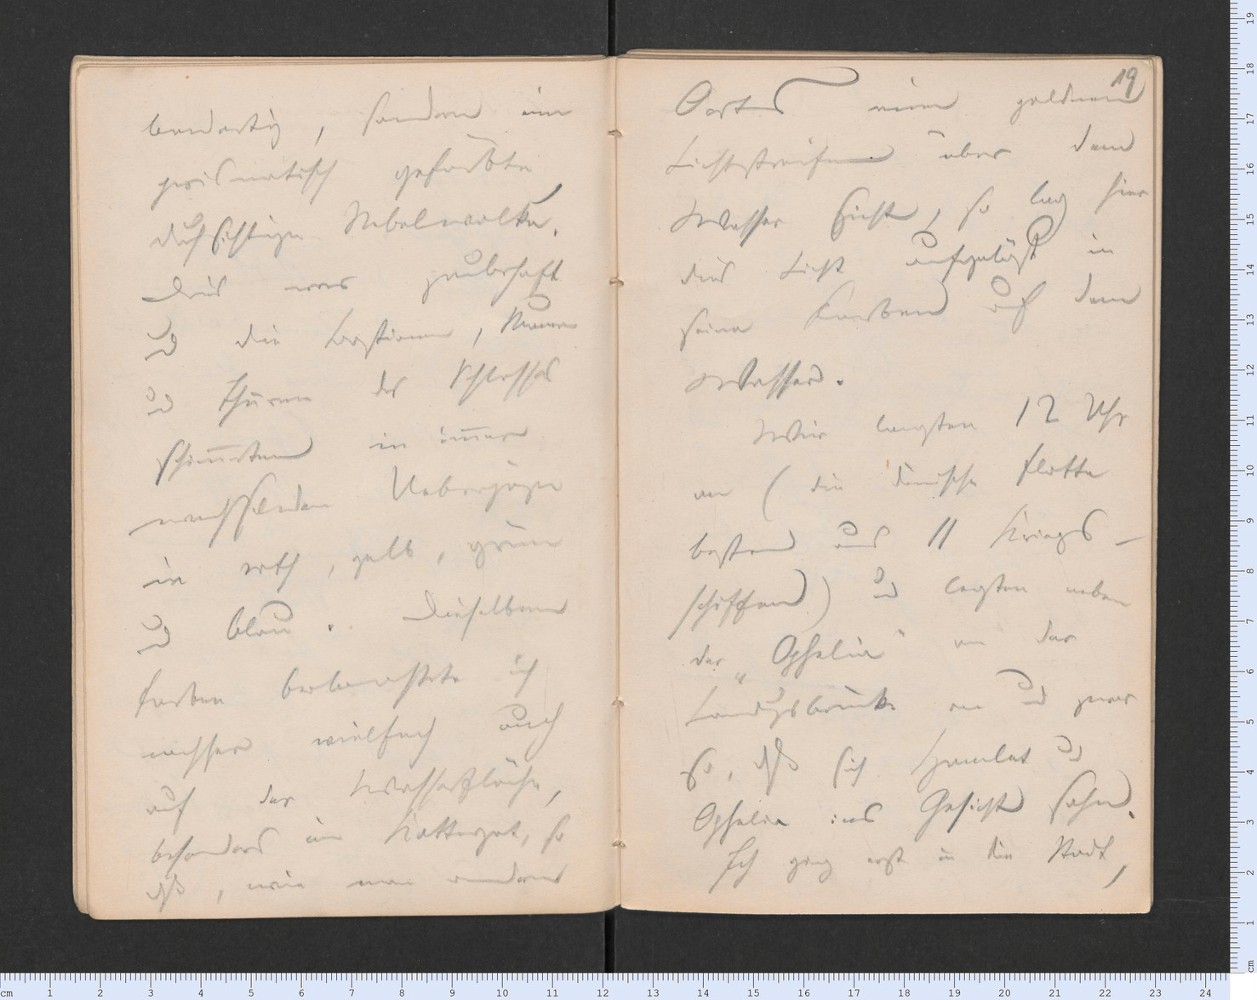 bandartig, sondern eine
prismatisch gefärbte
duftige Nebelwolke.
Dies war zauberhaft
und die Bastionen, Mauern
und Thürme des Schlosses
schimmerten in immer
wechselnden Uebergängen
in roth, gelb, grün
und blau. Dieselben
Farben beobachtete ich
nachher vielfach auch
auf der Wasserfläche,
besonders im Kattegat, so
daß, wie man anderen
19
Ortes einen goldnen
Lichtstreifen über dem
Wasser sieht, so lag hier
das Licht aufgelöst in
seine Farben auf dem
Wasser.
Wir langten 12 Uhr
an (die dänische Flotte
bestand aus 11 Kriegs-
schiffen) und legten neben
der „Ophelia“ an der
Landungsbrücke an und zwar
so, daß sich Hamlet und
Ophelia ins Gesicht sahen.
Ich ging erst in die Stadt,